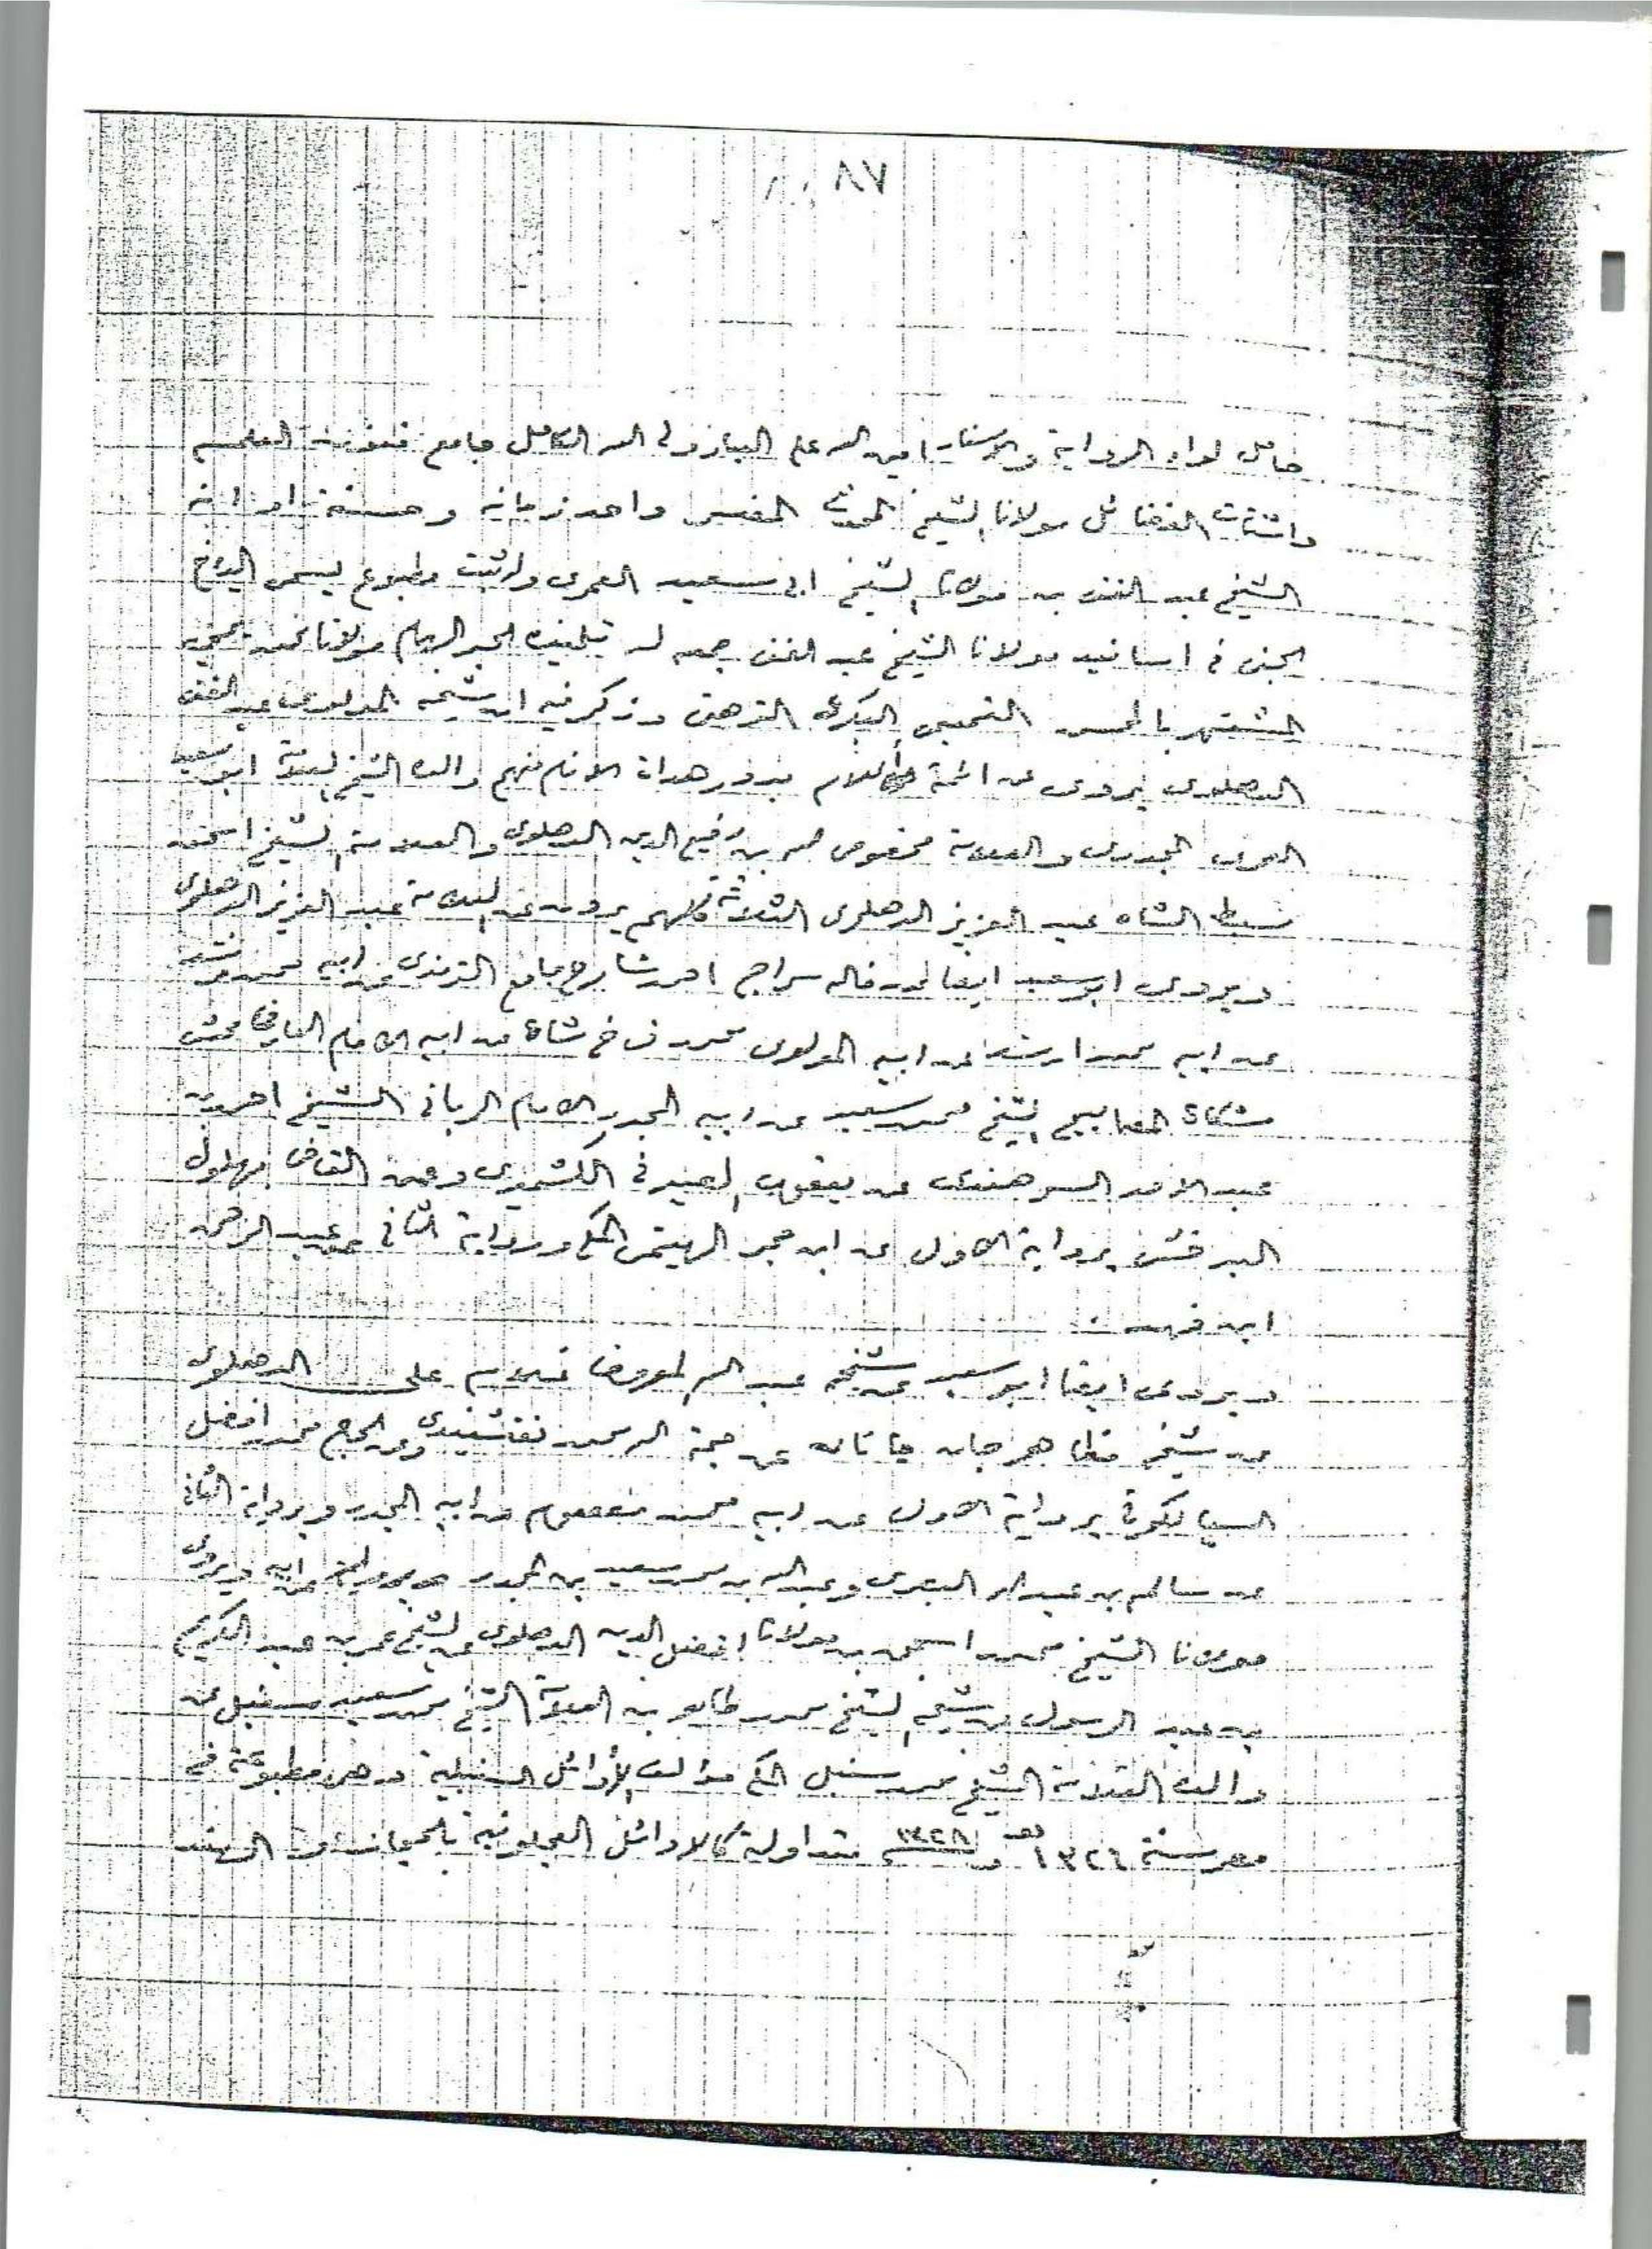 ٨٧
حامل لواء الرواية والاسناد امين الله على العباد ولى الله الكامل جامع فنون العلم
واشتات الفضائل مولانا الشيخ المحدث المفسر واحد زمانه وحسنة اوانه
الشيخ عبد الغنى بن مولانا الشيخ ابى سعيد العمرى وله ثبت مطبوع يسمى اليانع
الجنى فى اسانيد مولانا الشيخ عبد الغنى جمعه له تلميذه الحبر الهمام مولانا محمد يحيى
المشتهر بالمحسن التيمى البكرى الترهتى وذكر فيه ان شيخه المولوى عبد الغنى
الدهلوى يروى عن ائمة أعلام بدور هداة الانام منهم والده الشيخ العلامة ابو سعيد
العمرى المجددى والعلامة مخصوص الله بن رفيع الدين الدهلوى والعلامة الشيخ اسحق
سبط الشاه عبد العزيز الدهلوى الثلاثة كلهم يروون عن العلامة عبد العزيز الدهلوى
ويروى ابو سعيد ايضا عن خاله سراج احمد شارح جامع الترمذى عن ابيه محمد مرشد
عن ابيه محمد ارشد عن ابيه المولوى محمد فرخ شاه عن ابيه الامام العارف محشى
مشكاة المصابيح الشيخ محمد سعيد عن ابيه المجدد الامام الربانى الشيخ احمد بن
عبد الاحد السرهندى عن يعقوب الصيرفى الكشميرى وعن القاضى بهلول
البدخشى برواية الاول عن ابن حجر الهيتمى المكى ورواية الثانى عن عبد الرحمن
ابن فهد .
ويروى ايضا ابو سعيد عن شيخه عبد الله المعروف بغلام على الدهلوى
عن شيخه مظهر جان جانان عن حجة الله محمد نقشبندى وعن الحاج محمد افضل
السيالكوتى برواية الاول عن ابيه محمد معصوم عن ابيه المجدد وبرواية الثانى
عن سالم بن عبد الله البصرى وعبد الله بن محمد سعيد بن المجدد عن ابيه ويروى
مولانا الشيخ محمد اسحق بن مولانا افضل الدين الدهلوى عن الشيخ عمر بن عبد الكريم
بن عبد الرسول عن شيخه الشيخ محمد طاهر بن العلامة الشيخ محمد سعيد سنبل عن
والده العلامة الشيخ محمد سنبل المكى مؤلف الأوائل السنبلية وهى مطبوعة فى
مصر سنة ١٣٢٦ هـ متداولة كالاوائل العجلونية بالحجاز والهند